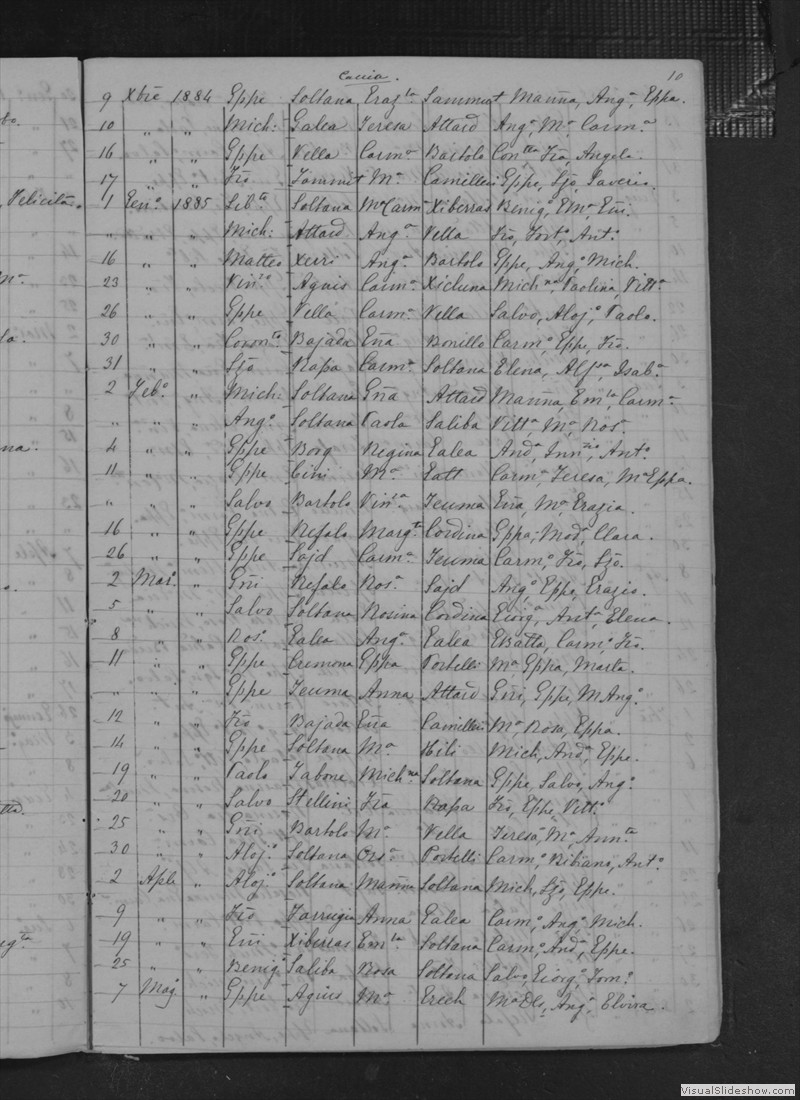 Caccia. 10
9 Xbre 1884 Gppe Soltana Graz.ta Sammut Mañna, Ang.a, Gppa.
10 " " Mich: Galea Teresa Attard Ang.a, M.a Carm.a
16 " " Gppe Vella Carm.a Bartolo Con.tta, Fro, Angelo.
17 " " Fro Tammut M.a Camilleri Gppe, Lzo, Saverio.
1 Gen.o 1885 Lib.to Soltana M.a Carm.a Xiberras Benig, G M.a Gñi.
" " " Mich: Attard Ang.a Vella Fro, Fort.o, Ant.o
16 " " Matteo Xerri Ang.a Bartolo Gppe, Ang.o, Mich.
23 " " Vin.zo Aguis Carm.a Xicluna Mich.na, Paolina, Vitt.a
26 " " Gppe Vella Carm.a Vella Salvo, Aloj.o Paolo.
30 " " Coron.to Bajada Gña Bonello Carm.o, Gppe, Fro.
31 " " Lzo Rapa Carm.a Soltana Elena, Alf.sa, Isab.a
2 Feb.o " Mich: Soltana Gña Attard Mañna, Em.la, Carm.a
" " " Ang.o Soltana Paola Saliba Vitt.a M.a Ros.a
4 " " Gppe Borg Regina Galea And.a, Inn.zio, Ant.o
11 " " Gppe Cini M.a Gatt Carm.a, Teresa, M.a Gppa.
" " " Salvo Bartolo Vin.za Teuma Gña, M.a Grazia.
16 " " Gppe Refalo Marg.ta Cordina Gppa, Mad.a, Clara.
26 " " Gppe Sajd Carm.a Teuma Carm.o, Fro, Lzo.
2 Mar.o " Gñi Refalo Ros.a Sajd Ang.o Gppe, Grazio.
5 " " Salvo Soltana Rosina Cordina Giorg.a, Ant.a, Elena.
8 " " Ros.o Galea Ang.a Galea GBatta, Carm.o Fro.
11 " " Gppe Cremona Gppa Portelli M.a Gppa, Marta.
" " " Gppe Teuma Anna Attard Gñi, Gppe, M Ang.o
12 " " Fro Bajada Gña Camilleri M.a, Rosa, Gppa.
14 " " Gppe Soltana M.a Hili Mich, And.a, Gppe.
19 " " Paolo Tabone Mich.na Soltana Gppe, Salvo, Ang.o
20 " " Salvo Stellini Fra Rapa Fro, Gppe, Vitt.o
25 " " Gñi Bartolo M.a Vella Teresa, M.a, Ann.ta
30 " " Aloj.o Soltana Ors.a Portelli Carm.o, Bibiano, Ant.o
2 Aple " Aloj.o Soltana Mañna Soltana Mich, Lzo, Gppe.
9 " " Fro Farrugia Anna Galea Carm.o, Ang.o, Mich.
19 " " Gñi Xiberras Em.la Soltana Carm.o, And.a, Gppe.
25 " " Benig.o Saliba Rosa Soltana Salvo, Giorg.o, Tom.o
7 Mag. " Gppe Aguis M.a Grech M.a Dl.s, Ang.a, Elvira.
VisualSlideshow.com